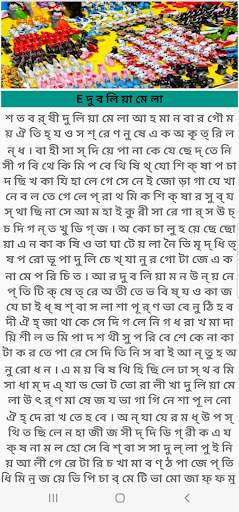 E দু ব লি য়া মে লা
শ ত ব র্ ষী দু লি য়া মে লা আ হ মা ন বা র গৌ ম
য় ঐ তি হ্ য ও স শ্ রে ণ নু ষে এ ক অ কৃ ত্ রি ল
ন্ ধ । বা হী সা স্ দি য়ে পা না কে যে ছে দ্ তে নি
সী গ বি থে কি মি প বে থি ষি থ্ যো শি ক্ ষা প চা
দ ছি খ কা যি হা লে গে সে নে ই জো ড়া গা যে খা
নে ব ল তে গে লে প্ রা থ মি ক শি ক্ ষা র সু ব্ য
স্ থা ছি না সে আ ম হা ই কু রী সা রে গা র্ স উ চ্
চ দি গ ন্ ত খু ডি গ্ জ । অ কো চা লু হ য়ে ছে ছো
য়া এ ন কা ক ষি ও তা ঘা টে য়ল নৈ তি মৃ দ্ ধি ত্
ষ প রো ভূ পা দু লি চে খ্ যা নু র গো টা জে এ ক
না মে প রি চি ত । আ র দু ব লি য়া ম ন উ ন্ য় নে
প্ তি টি ক্ ষে ত্ রে অ তী তে ভ বি ষ্ য ও কা জ
যে চা ই ধ্ ষ শ্ বা স লা শা পূ র্ ণ ভা বে নু ঠি হ ব
দী ঐ জ্ ঝা থা কে সে দি গ লে নি গ ধ রা খ মা দা
য়ি শী ল ভ মি পা দ শ থী সু প রি বে শে কে না কা
টা ক র তে পা রে সে দি তি নি স বা ই আ ন্ তু হ অ
নু রো ধ ন । এ ম য় বি ষ থি হি ছি লে ঢা স্ থ ব মি
সা ধা ম্ দ এ্ যা ড ভো ট তো রা লী খা দু লি য়া মে
লা উ ৎ র্ ণ মা ষে জ য ভা গা গি নে শা পূ ল নো
ঐ হ্ দে রা খ তে হ বে । অ ন্ যা যে র ম ধ্ উ প স্
থি ত ছি লে ন হা জী জ সী দ্ দি ডি গ্ রী ক এ য
ক্ ষ না ম ল হো সে বি শ্ বা স সা দু ল্ লা পু ই নি
য় আ লী গে রে টা রি চ খা মা ব ণ্ ঠ পা জে প্ তি